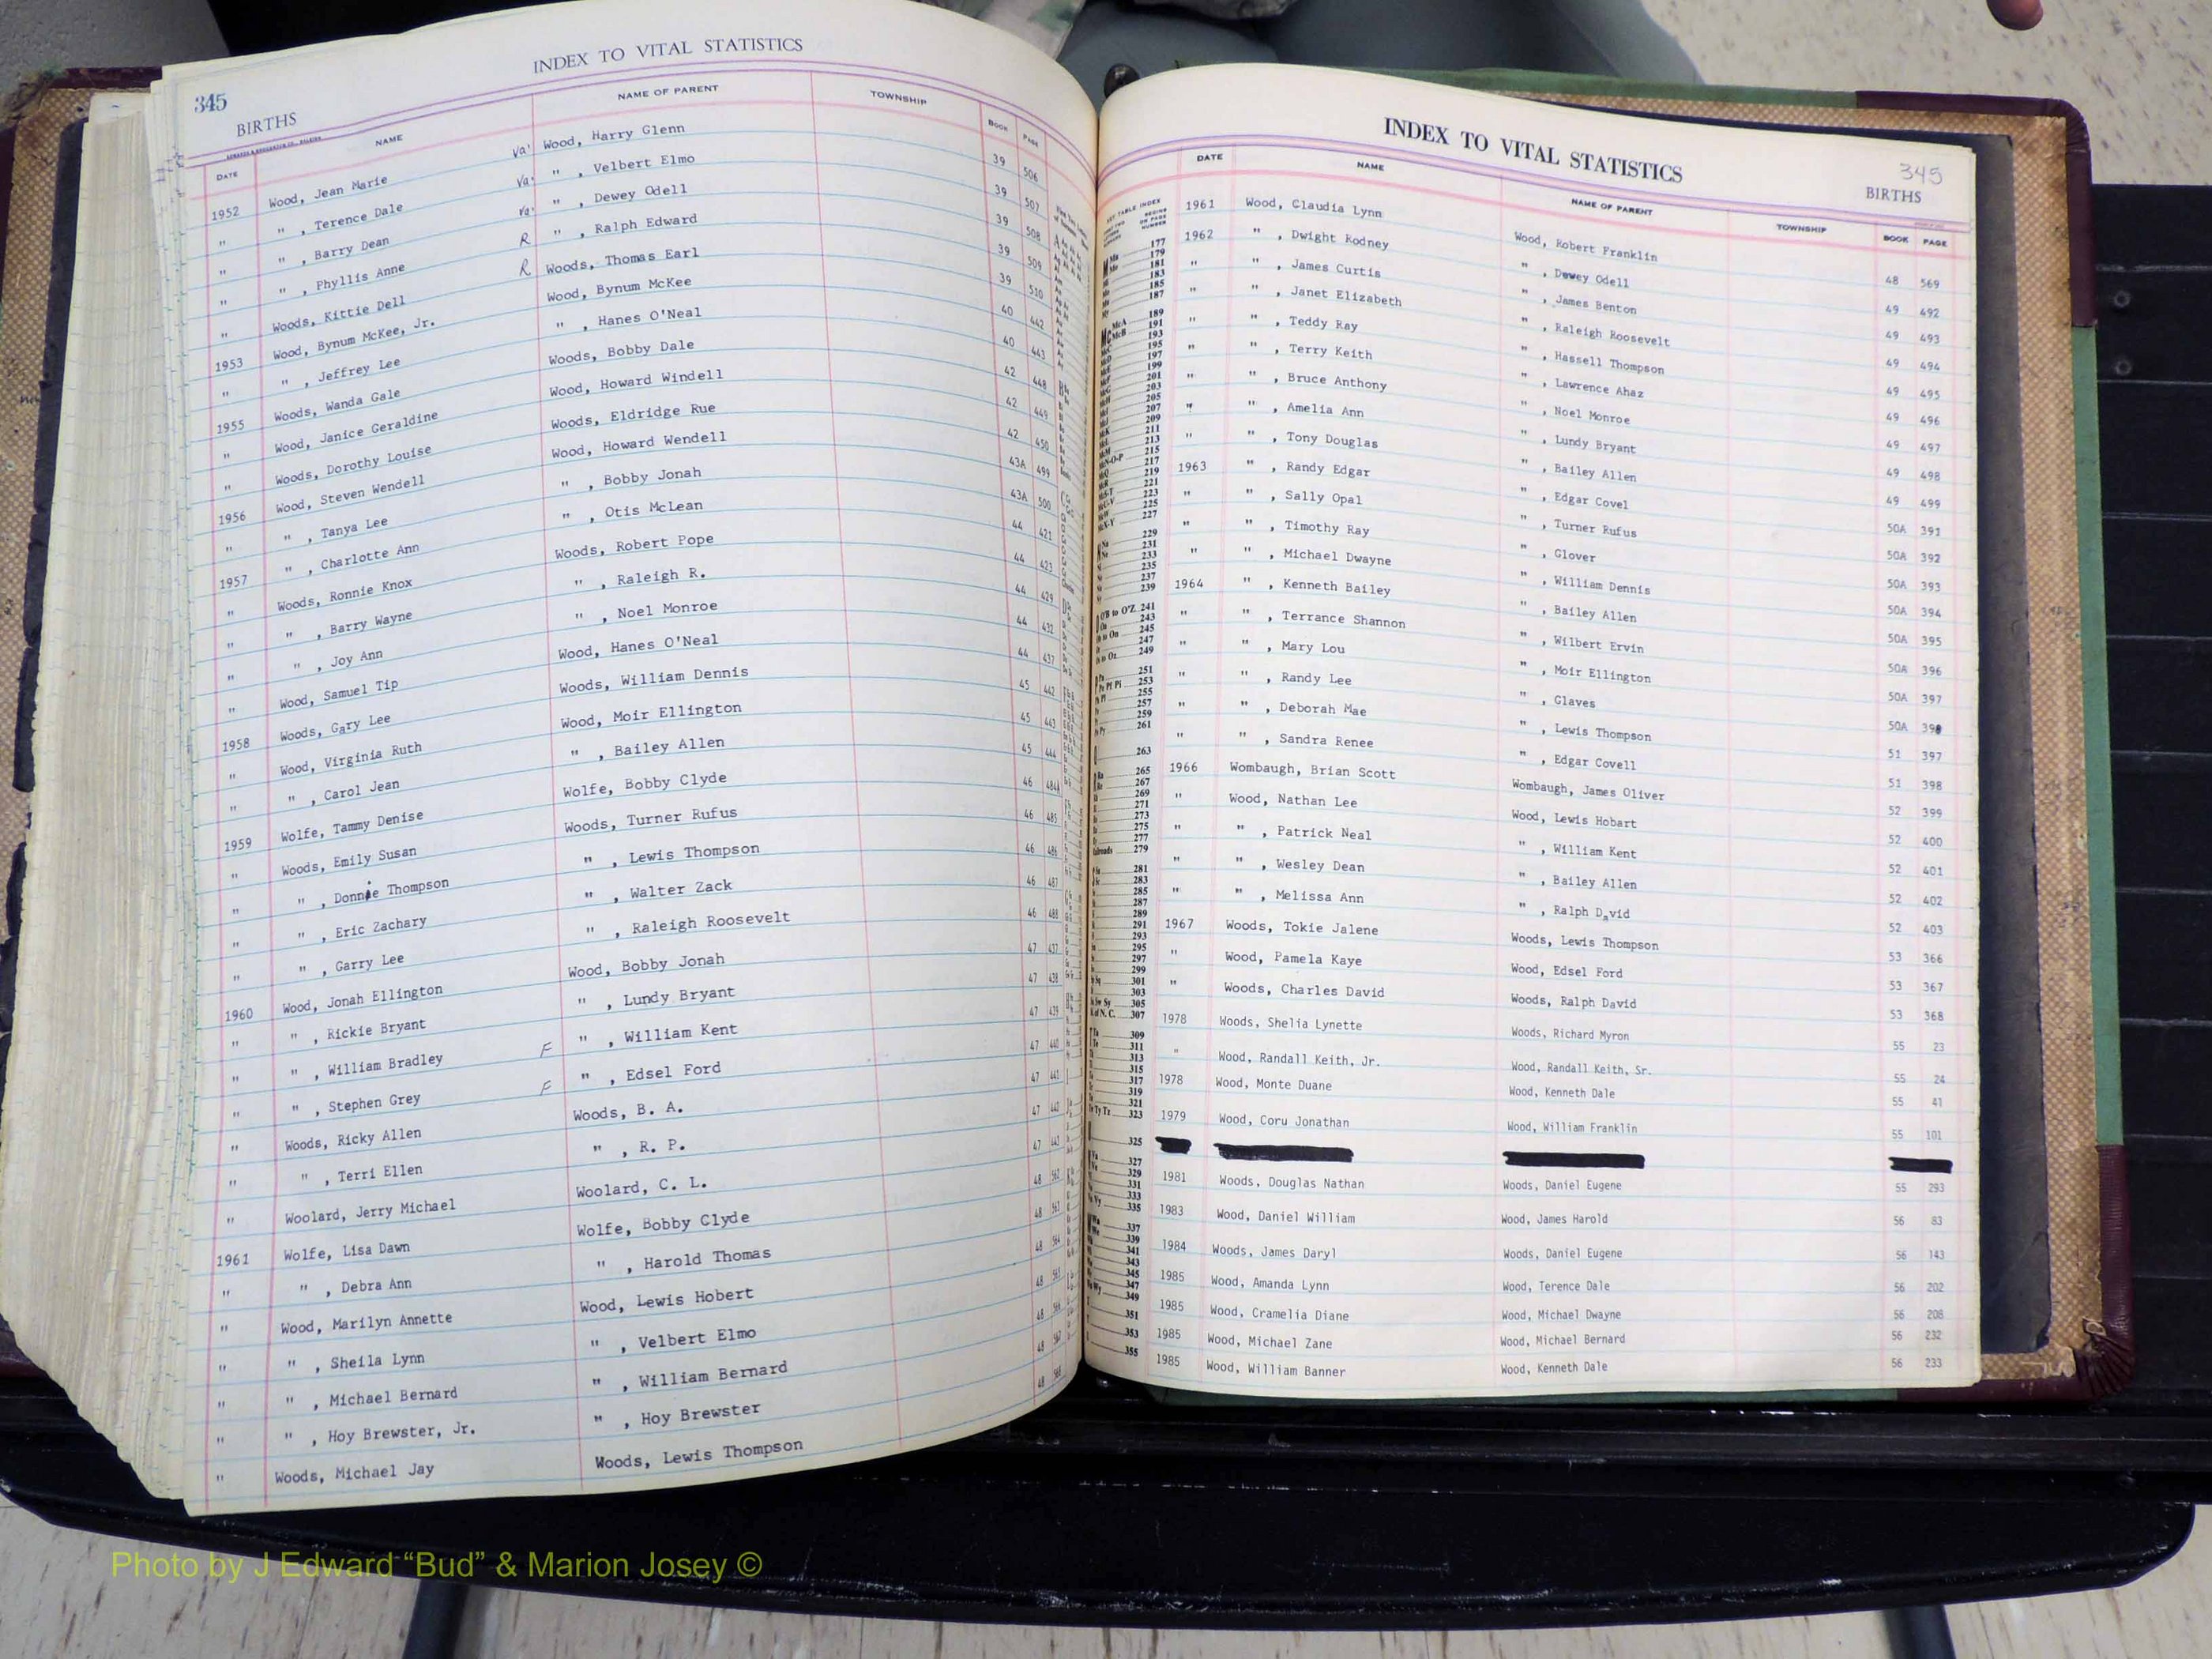 345
INDEX TO VITAL STATISTICS
BIRTHS
DATE NAME NAME OF PARENT TOWNSHIP BOOK PAGE
1952 Wood, Jean Marie Va' Wood, Harry Glenn 39 506
" " , Terence Dale Va' " , Velbert Elmo 39 507
" " , Barry Dean Va' " , Dewey Odell 39 508
" " , Phyllis Anne R " , Ralph Edward 39 509
" Woods, Kittie Dell R Woods, Thomas Earl 39 510
1953 Wood, Bynum McKee, Jr. Wood, Bynum McKee 40 442
" " , Jeffrey Lee " , Hanes O'Neal 40 443
1955 Woods, Wanda Gale Woods, Bobby Dale 42 448
" Wood, Janice Geraldine Wood, Howard Windell 42 449
" Woods, Dorothy Louise Woods, Eldridge Rue 42 450
1956 Wood, Steven Wendell Wood, Howard Wendell 43A 499
" " , Tanya Lee " , Bobby Jonah 43A 500
1957 " , Charlotte Ann " , Otis McLean 44 421
" Woods, Ronnie Knox Woods, Robert Pope 44 423
" " , Barry Wayne " , Raleigh R. 44 429
" " , Joy Ann " , Noel Monroe 44 432
" Wood, Samuel Tip Wood, Hanes O'Neal 44 437
1958 Woods, Gary Lee Woods, William Dennis 45 442
" Wood, Virginia Ruth Wood, Moir Ellington 45 443
" " , Carol Jean " , Bailey Allen 45 444
1959 Wolfe, Tammy Denise Wolfe, Bobby Clyde 46 484A
" Woods, Emily Susan Woods, Turner Rufus 46 485
" " , Donnie Thompson " , Lewis Thompson 46 486
" " , Eric Zachary " , Walter Zack 46 487
" " , Garry Lee " , Raleigh Roosevelt 46 488
1960 Wood, Jonah Ellington Wood, Bobby Jonah 47 437
" " , Rickie Bryant " , Lundy Bryant 47 438
" " , William Bradley F " , William Kent 47 439
" " , Stephen Grey F " , Edsel Ford 47 440
" Woods, Ricky Allen Woods, B. A. 47 441
" " , Terri Ellen " , R. P. 47 442
" Woolard, Jerry Michael Woolard, C. L. 47 443
1961 Wolfe, Lisa Dawn Wolfe, Bobby Clyde 48 562
" " , Debra Ann " , Harold Thomas 48 563
" Wood, Marilyn Annette Wood, Lewis Hobert 48 564
" " , Sheila Lynn " , Velbert Elmo 48 565
" " , Michael Bernard " , William Bernard 48 566
" " , Hoy Brewster, Jr. " , Hoy Brewster 48 567
" Woods, Michael Jay Woods, Lewis Thompson 48 568
INDEX TO VITAL STATISTICS
345
BIRTHS
DATE NAME NAME OF PARENT TOWNSHIP BOOK PAGE
1961 Wood, Claudia Lynn Wood, Robert Franklin 48 569
1962 " , Dwight Rodney " , Dewey Odell 49 492
" " , James Curtis " , James Benton 49 493
" " , Janet Elizabeth " , Raleigh Roosevelt 49 494
" " , Teddy Ray " , Hassell Thompson 49 495
" " , Terry Keith " , Lawrence Ahaz 49 496
" " , Bruce Anthony " , Noel Monroe 49 497
" " , Amelia Ann " , Lundy Bryant 49 498
" " , Tony Douglas " , Bailey Allen 49 499
1963 " , Randy Edgar " , Edgar Covel 50A 391
" " , Sally Opal " , Turner Rufus 50A 392
" " , Timothy Ray " , Glover 50A 393
" " , Michael Dwayne " , William Dennis 50A 394
1964 " , Kenneth Bailey " , Bailey Allen 50A 395
" " , Terrance Shannon " , Wilbert Ervin 50A 396
" " , Mary Lou " , Moir Ellington 50A 397
" " , Randy Lee " , Glaves 50A 398
" " , Deborah Mae " , Lewis Thompson 51 397
" " , Sandra Renee " , Edgar Covell 51 398
1966 Wombaugh, Brian Scott Wombaugh, James Oliver 52 399
" Wood, Nathan Lee Wood, Lewis Hobart 52 400
" " , Patrick Neal " , William Kent 52 401
" " , Wesley Dean " , Bailey Allen 52 402
" " , Melissa Ann " , Ralph David 52 403
1967 Woods, Tokie Jalene Woods, Lewis Thompson 53 366
" Wood, Pamela Kaye Wood, Edsel Ford 53 367
" Woods, Charles David Woods, Ralph David 53 368
1978 Woods, Shelia Lynette Woods, Richard Myron 55 23
" Wood, Randall Keith, Jr. Wood, Randall Keith, Sr. 55 24
1978 Wood, Monte Duane Wood, Kenneth Dale 55 41
1979 Wood, Coru Jonathan Wood, William Franklin 55 101
1981 Woods, Douglas Nathan Woods, Daniel Eugene 55 293
1983 Wood, Daniel William Wood, James Harold 56 83
1984 Woods, James Daryl Woods, Daniel Eugene 56 143
1985 Wood, Amanda Lynn Wood, Terence Dale 56 202
1985 Wood, Cramelia Diane Wood, Michael Dwayne 56 208
1985 Wood, Michael Zane Wood, Michael Bernard 56 232
1985 Wood, William Banner Wood, Kenneth Dale 56 233
Photo by J Edward “Bud” & Marion Josey ©